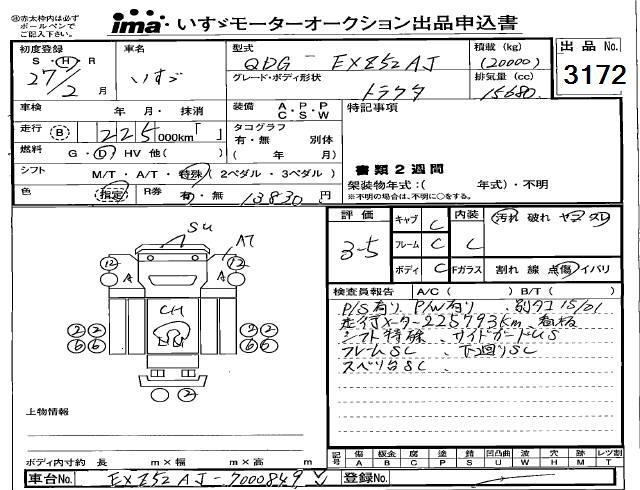 ※赤太枠内は必ず
ボールペンで
ご記入下さい。
ima いすゞモーターオークション出品申込書
初度登録
S・H・R
27/2 月
車名
いすゞ
型式
QDG - EXZ52AJ
グレード・ボディ形状
トラクタ
積載 (kg)
(20000)
排気量 (cc)
15680
出品 No.
3172
車検 年 月・ 抹消
装備 A・P・P
C・S・W
特記事項
走行 B 225 000km「 」
タコグラフ
有・無 別体
( 年 月)
燃料 G・D・HV 他( )
シフト M/T・A/T・特殊 (2ペダル・3ペダル)
書類2週間
架装物年式:( 年式)・不明
※不明の場合は、不明に○をする。
色 (指定) R券 有・無 13830 円
SU
A7
12 A A 12
CH
2 2 2 2
6 6 6 6
2
評価
3-5
キャブ C 内装 汚れ 破れ ヤニ スレ
フレーム C C
ボディ C Fガラス 割れ 線 点傷 イバリ
検査員報告 A/C ( ) B/T ( )
P/S有り P/W有り 別タコ15/01
走行メーター225793km 看板
シフト特殊 サイドガードUS
フレームSC 下回りSC
スベリ台SC
上物情報
ボディ内寸約 長 m×幅 m×高 m
記号 傷A 板金B 腐C 塗P 錆S 凹凸曲U 波W 穴H 跡M レツ割T
車台No. EXZ52AJ-7000849
登録No.